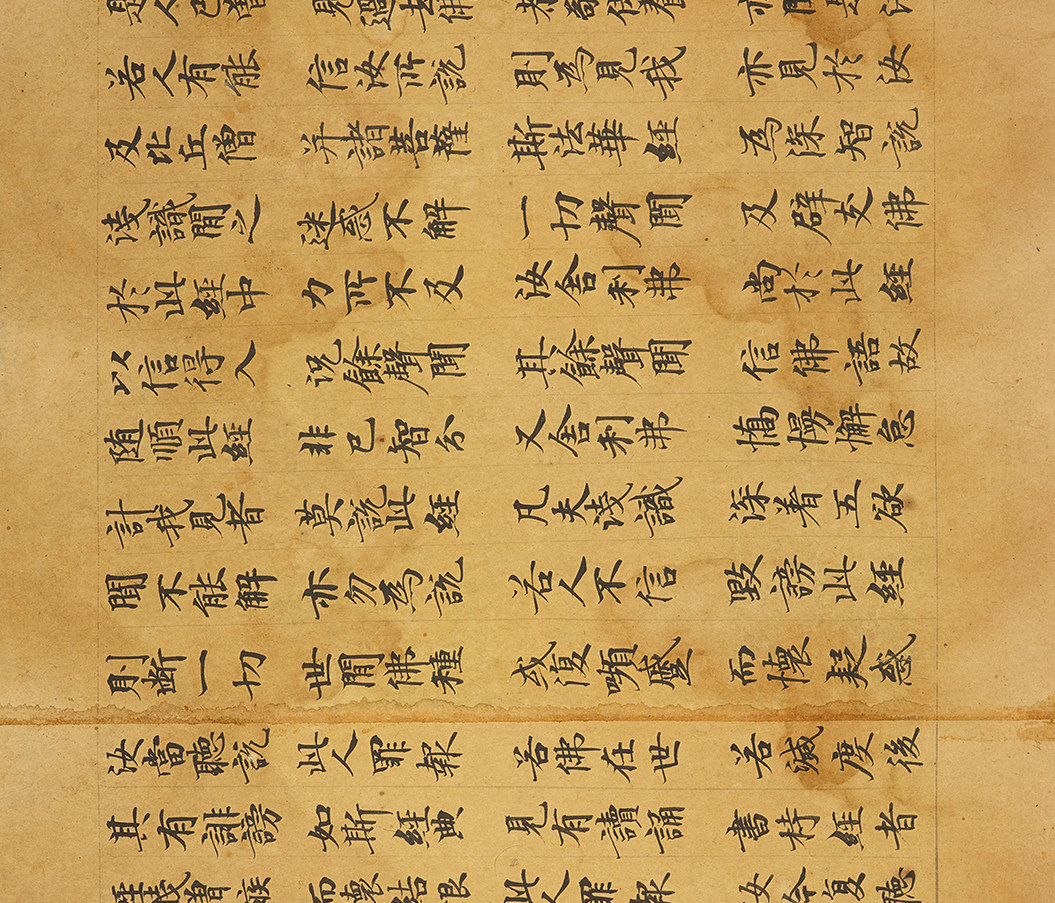 是人已曾 見過去佛 恭敬供養 亦聞是法
若人有能 信汝所說 則為見我 亦見於汝
及比丘僧 并諸菩薩 斯法華經 為深智說
淺識聞之 迷惑不解 一切聲聞 及辟支佛
於此經中 力所不及 汝舍利弗 尚於此經
以信得入 况餘聲聞 其餘聲聞 信佛語故
随順此經 非己智分 又舍利弗 憍慢懈怠
計我見者 莫說此經 凡夫淺識 深著五欲
聞不能解 亦勿為說 若人不信 毀謗此經
則断一切 世間佛種 或復嚬蹙 而懷疑惑
汝當聽說 此人罪報 若佛在世 若滅度後
其有誹謗 如斯經典 見有讀誦 書持經者
輕賤憎嫉 而懷結恨 此人罪報 汝今復聽